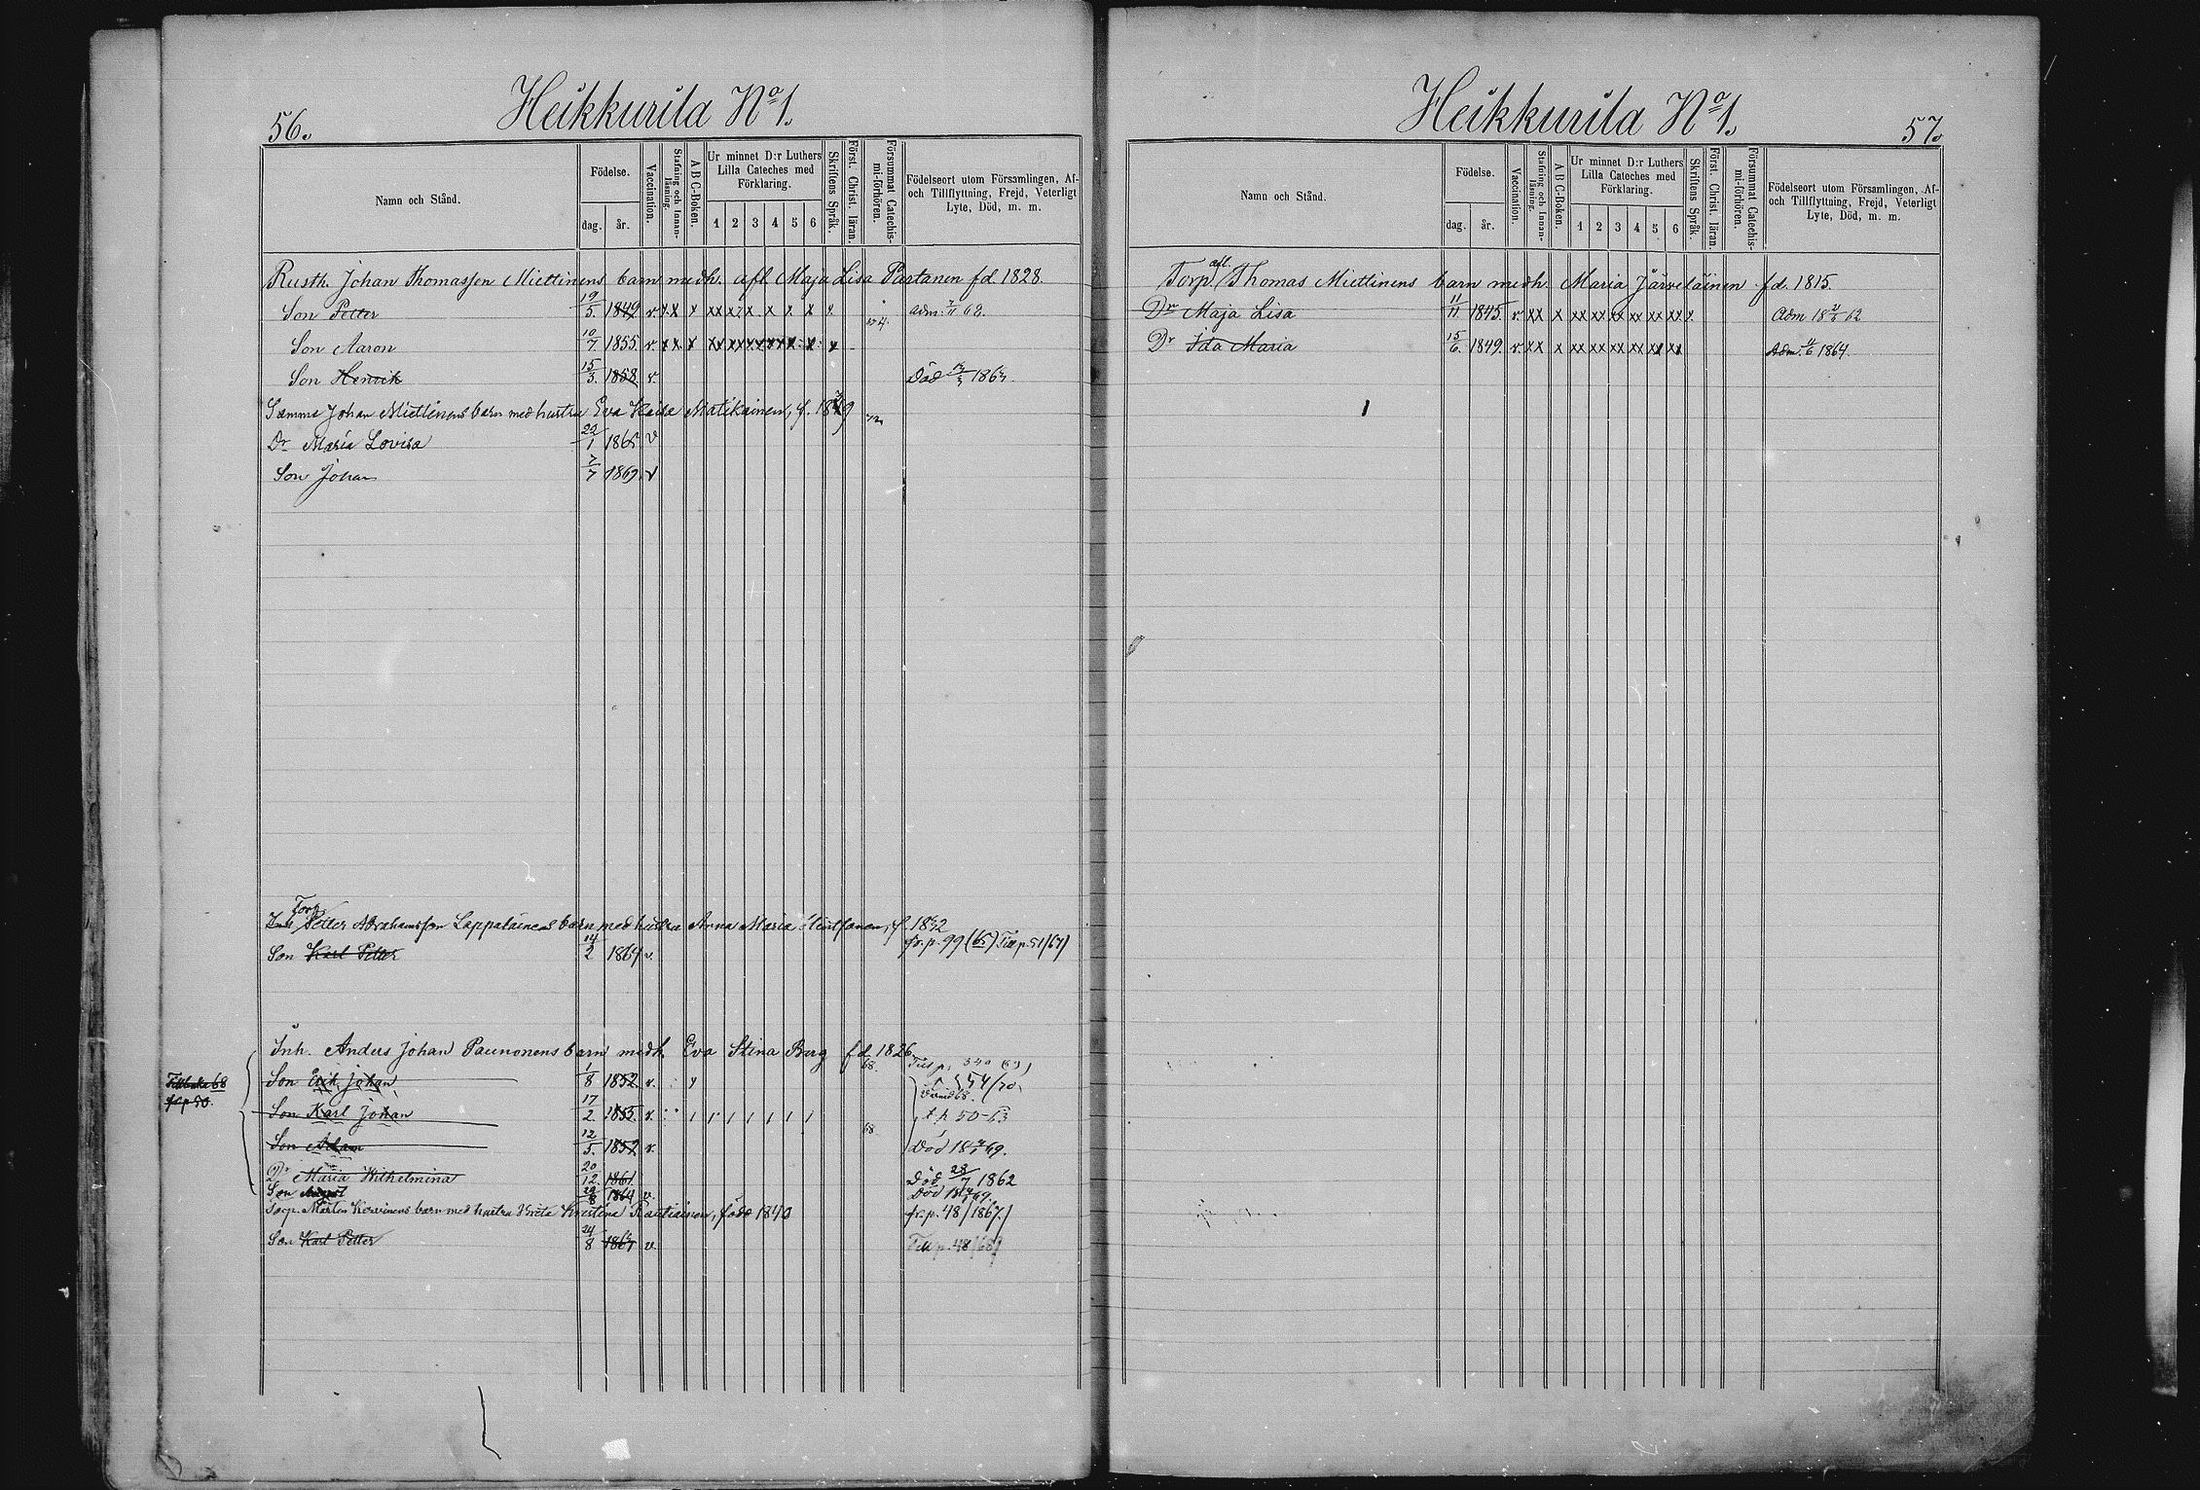 56.
Heikkurila No 1.
Namn och Stånd.
Födelse.
dag.
år.
Vaccination.
Stafning och Innan-läsning.
A B C-Boken.
Ur minnet D:r Luthers Lilla Cateches med Förklaring.
1 2 3 4 5 6
Skriftens Språk.
Först. Christ. läran.
Försummat Catechis-mi-förhören.
Födelseort utom Församlingen, Af- och Tillflyttning, Frejd, Veterligt Lyte, Död, m. m.
Rusth. Johan Thomasson Miettinens barn medh. afl. Maja Lisa Partanen fd 1828.
Son Petter 19/5 1849 v. x x x xx xx x x x x x adm. 68.
Son Aaron 10/7 1855 v. xx x x xx xx xx xx x x x
Son Henrik 15/3. 1858 v. Död
Samma Johan Miettinens barn med hustru Eva Kaisa Matikainen, f.
Dr Maria Lovisa 22/1 1865 v
Son Johan 7/7 1869. v
Torp.
Petter Abrahamsson Lappalainens barn med hustru Anna Maria f. 1842
Son Karl Petter 14/2 1864 v. fr. p. 99 (65) Till p. 51/67)
Inh. Anders Johan Paunonens barn medh. Eva Stina Berg fd 1826.
Son Erik Johan 1/8 1852. v. 54/70
Son Karl Johan 17/2. 1855. v. t. p. 50-63
68
Son Adam 12/5. v. Död
Dr Maria Wilhelmina 20/12 1861. Död 28/7 1862
Son August 1864 v. Död
Torp. Mårten Korvinens barn med hustru Greta Kristina Rautiainen, född 1840 fr. p. 48/1867/
Son Karl Petter 24/8 v. Till p. 48/68/
57.
Heikkurila No 1.
Namn och Stånd.
Födelse.
dag.
år.
Vaccination.
Stafning och Innan-läsning.
A B C-Boken.
Ur minnet D:r Luthers Lilla Cateches med Förklaring.
1 2 3 4 5 6
Skriftens Språk.
Först. Christ. läran.
Försummat Catechis-mi-förhören.
Födelseort utom Församlingen, Af- och Tillflyttning, Frejd, Veterligt Lyte, Död, m. m.
Torp. afl. Thomas Miettinens barn medh. Maria Järveläinen fd. 1815.
Dr Maja Lisa 11/11 1845. v. xx x xx xx xx xx xx xx x. Adm 62
Dr Ida Maria 15/6. 1849. v. xx x xx xx xx xx xx xx Adm. 1864.